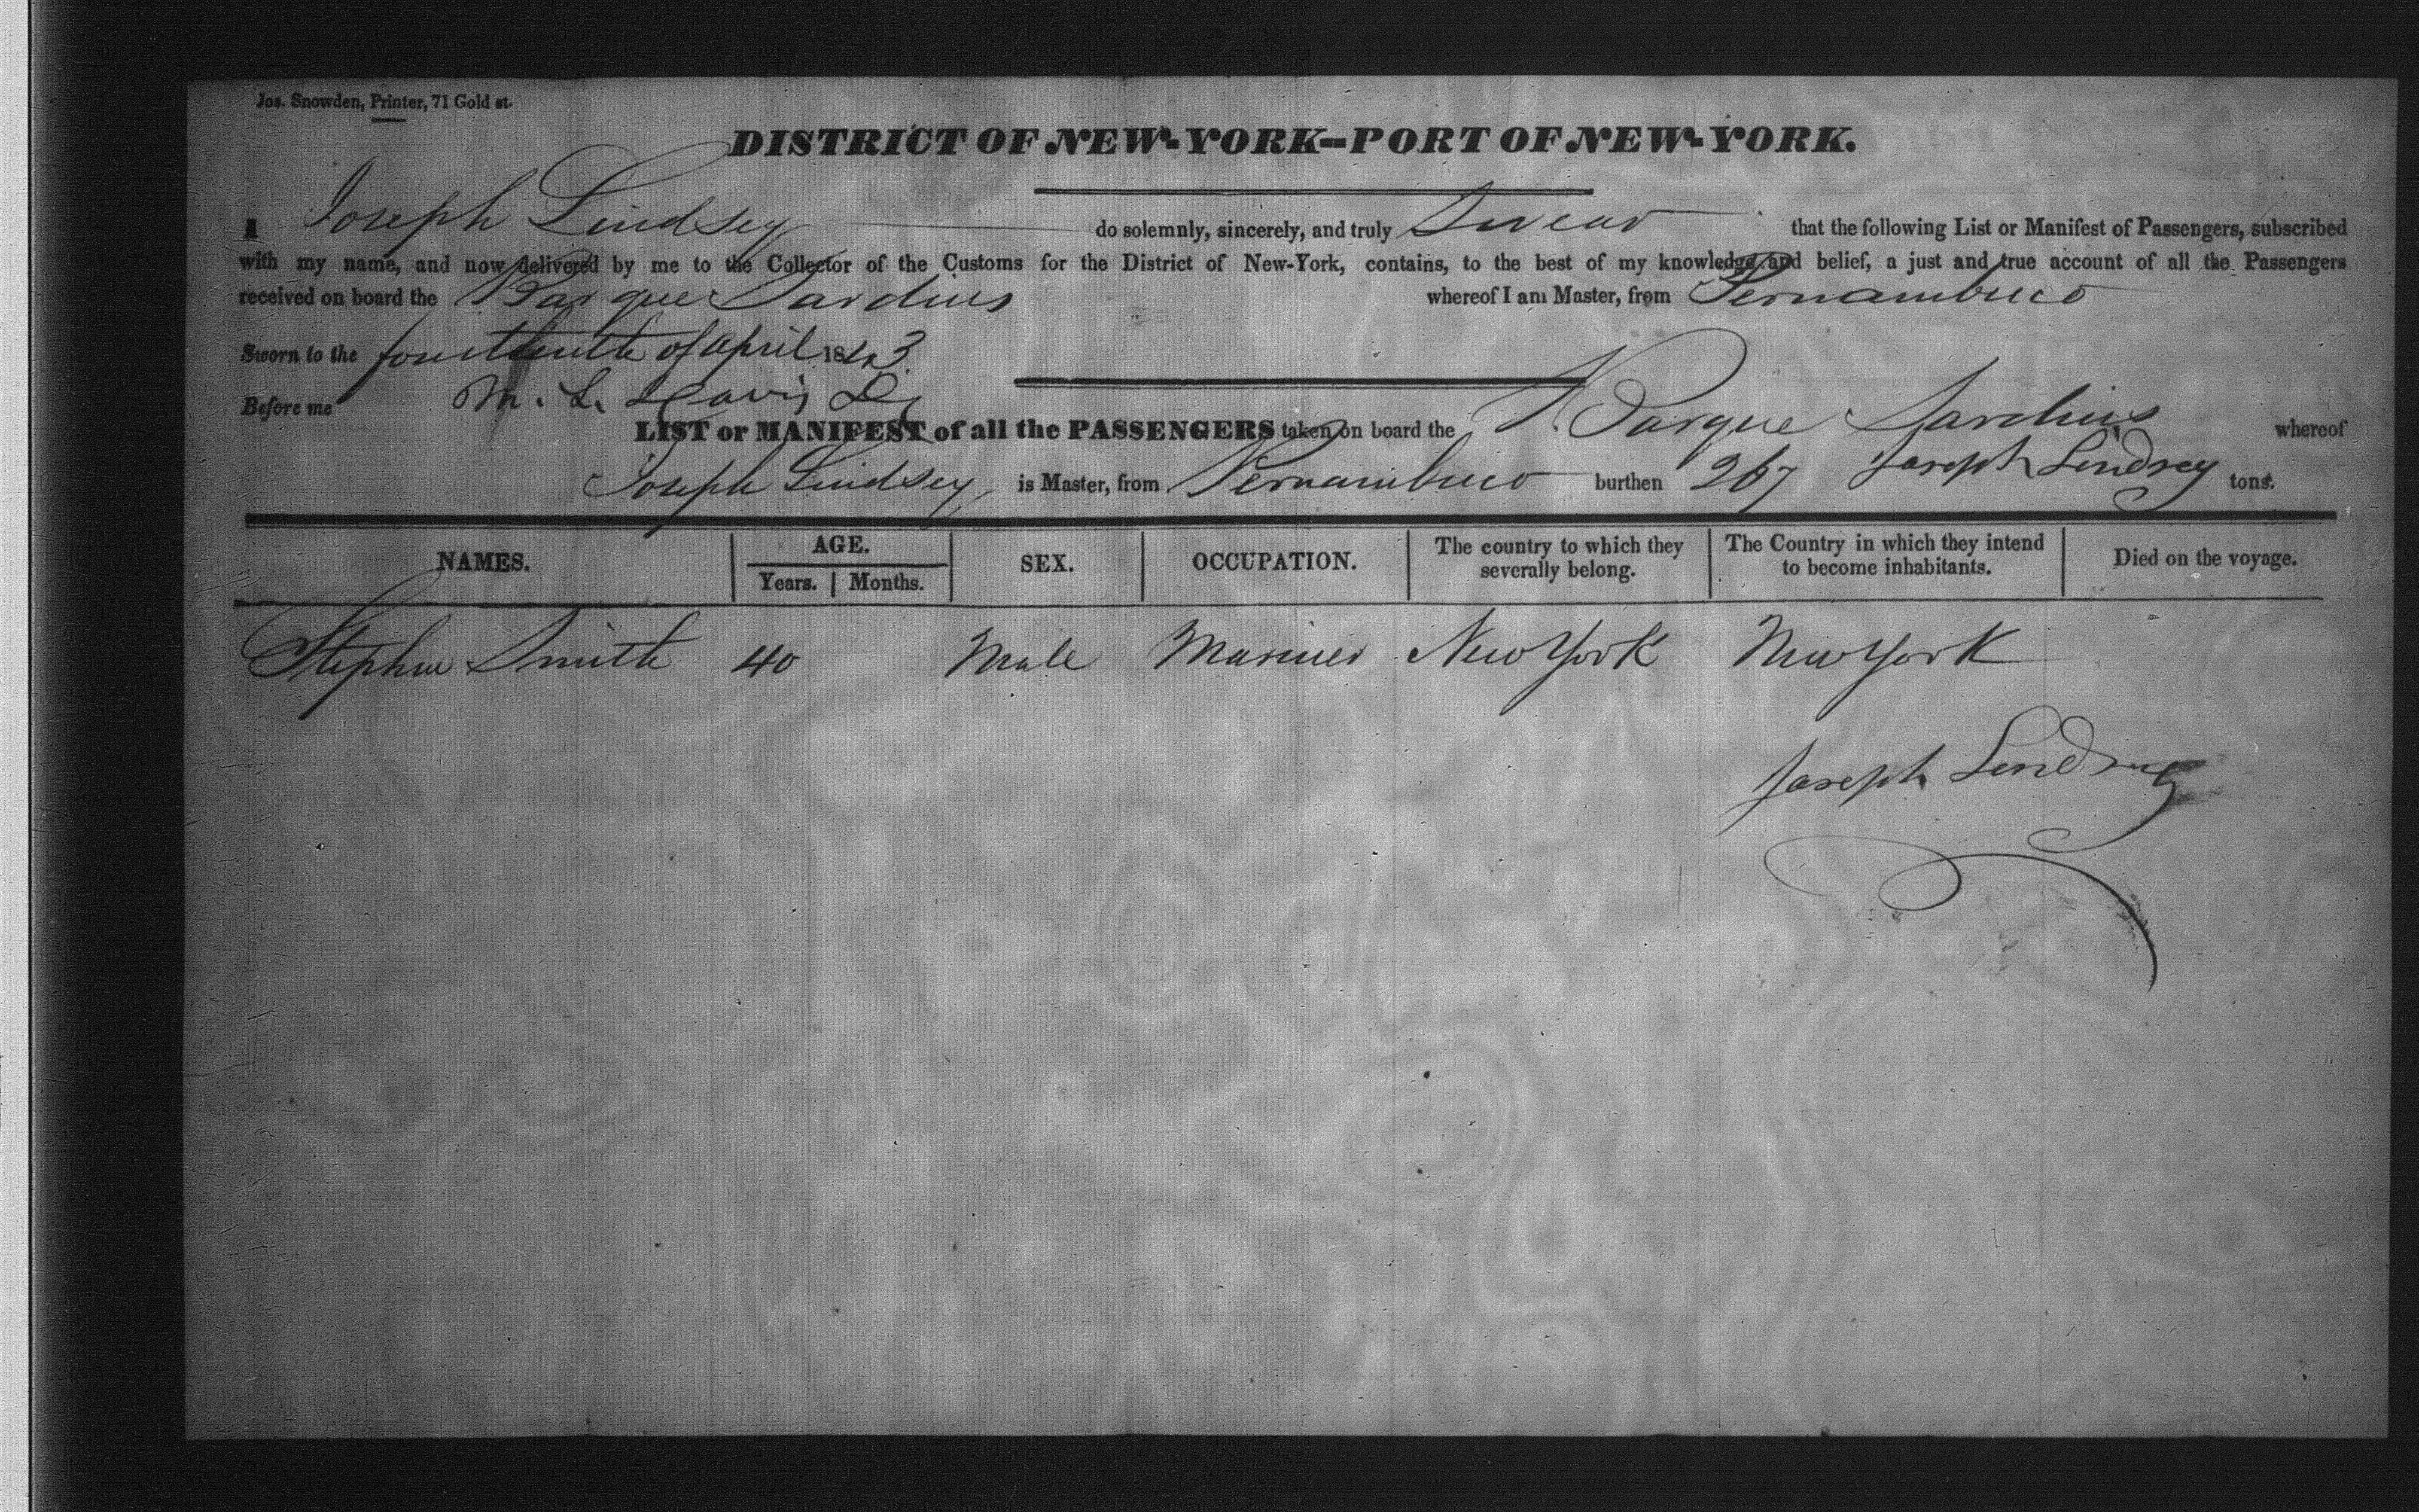 Jos. Snowden, Printer, 71 Gold st.
DISTRICT OF NEW-YORK--PORT OF NEW-YORK.
I Joseph Lindsey do solemnly, sincerely, and truly Swear that the following List or Manifest of Passengers, subscribed
with my name, and now delivered by me to the Collector of the Customs for the District of New-York, contains, to the best of my knowledge and belief, a just and true account of all the Passengers
received on board the Barque Sardius whereof I am Master, from Pernambuco
Sworn to the fourteenth of april 1843
Before me M. L. Davis
LIST or MANIFEST of all the PASSENGERS taken on board the Barque Sardius whereof
Joseph Lindsey, is Master, from Pernambuco burthen 267 Joseph Lindsey tons.
NAMES. AGE. Years. Months. SEX. OCCUPATION. The country to which they severally belong. The Country in which they intend to become inhabitants. Died on the voyage.
Stephen Smith 40 Male Mariner New York New York
Joseph Lindsey